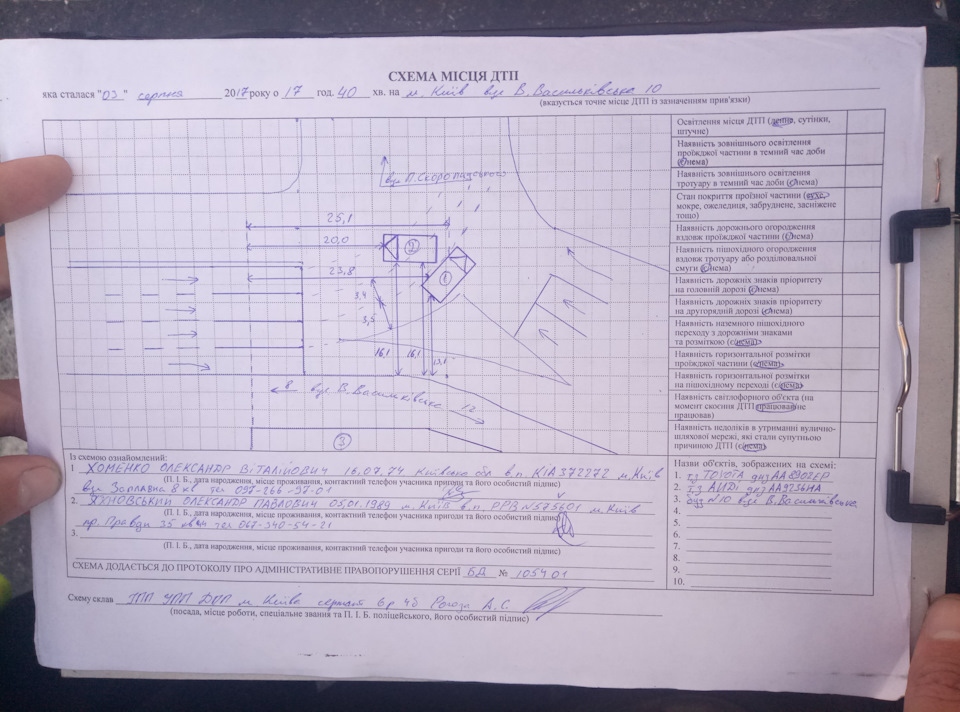 СХЕМА МІСЦЯ ДТП
яка сталася "03" серпня 2017 року о 17 год. 40 хв. на м. Київ вул В.Васильківська 10
(вказується точне місце ДТП із зазначенням прив'язки)
вул П.Скоропадського
25,1
20,0
2
23,8
1
3,4
3,5
16,1
16,1
13,1
8 вул В.Васильківська 12
3
Освітлення місця ДТП (денне, сутінки,
штучне)
Наявність зовнішнього освітлення
проїжджої частини в темний час доби
(є/нема)
Наявність зовнішнього освітлення
тротуару в темний час доби (є/нема)
Стан покриття проїзної частини (сухе,
мокре, ожеледиця, забруднене, засніжене
тощо)
Наявність дорожнього огородження
вздовж проїжджої частини (є/нема)
Наявність пішохідного огородження
вздовж тротуару або розділювальної
смуги (є/нема)
Наявність дорожніх знаків пріоритету
на головній дорозі (є/нема)
Наявність дорожніх знаків пріоритету
на другорядній дорозі (є/нема)
Наявність наземного пішохідного
переходу з дорожніми знаками
та розміткою (є/нема)
Наявність горизонтальної розмітки
проїжджої частини (є/нема)
Наявність горизонтальної розмітки
на пішохідному переході (є/нема)
Наявність світлофорного об'єкта (на
момент скоєння ДТП працював/не
працював)
Наявність недоліків в утриманні вулично-
шляхової мережі, які стали супутньою
причиною ДТП (є/нема)
Із схемою ознайомлений:
1. ХОМЕНКО ОЛЕКСАНДР ВІТАЛІЙОВИЧ 16.07.74 Київська обл в.п. КІА 372272 м.Київ
(П. І. Б., дата народження, місце проживання, контактний телефон учасника пригоди та його особистий підпис)
вул Заплавна 8 кв тел 097-266-97-01
2. ЯХНОВСЬКИЙ ОЛЕКСАНДР ПАВЛОВИЧ 05.01.1989 м.Київ в.п. РРВ №575601 м.Київ
(П. І. Б., дата народження, місце проживання, контактний телефон учасника пригоди та його особистий підпис)
пр. Правди 35 тел 067-340-54-21
3.
(П. І. Б., дата народження, місце проживання, контактний телефон учасника пригоди та його особистий підпис)
СХЕМА ДОДАЄТЬСЯ ДО ПРОТОКОЛУ ПРО АДМІНІСТРАТИВНЕ ПРАВОПОРУШЕННЯ СЕРІЇ БД № 105401
Назви об'єктів, зображених на схемі:
1. тз TOYOTA днз
2. тз АУДІ днз АА9236НА
3. буд №10 вул В.Васильківська
4.
5.
6.
7.
8.
9.
10.
Схему склав УПП ДПП м Києва сержант А.С.
(посада, місце роботи, спеціальне звання та П. І. Б. поліцейського, його особистий підпис)